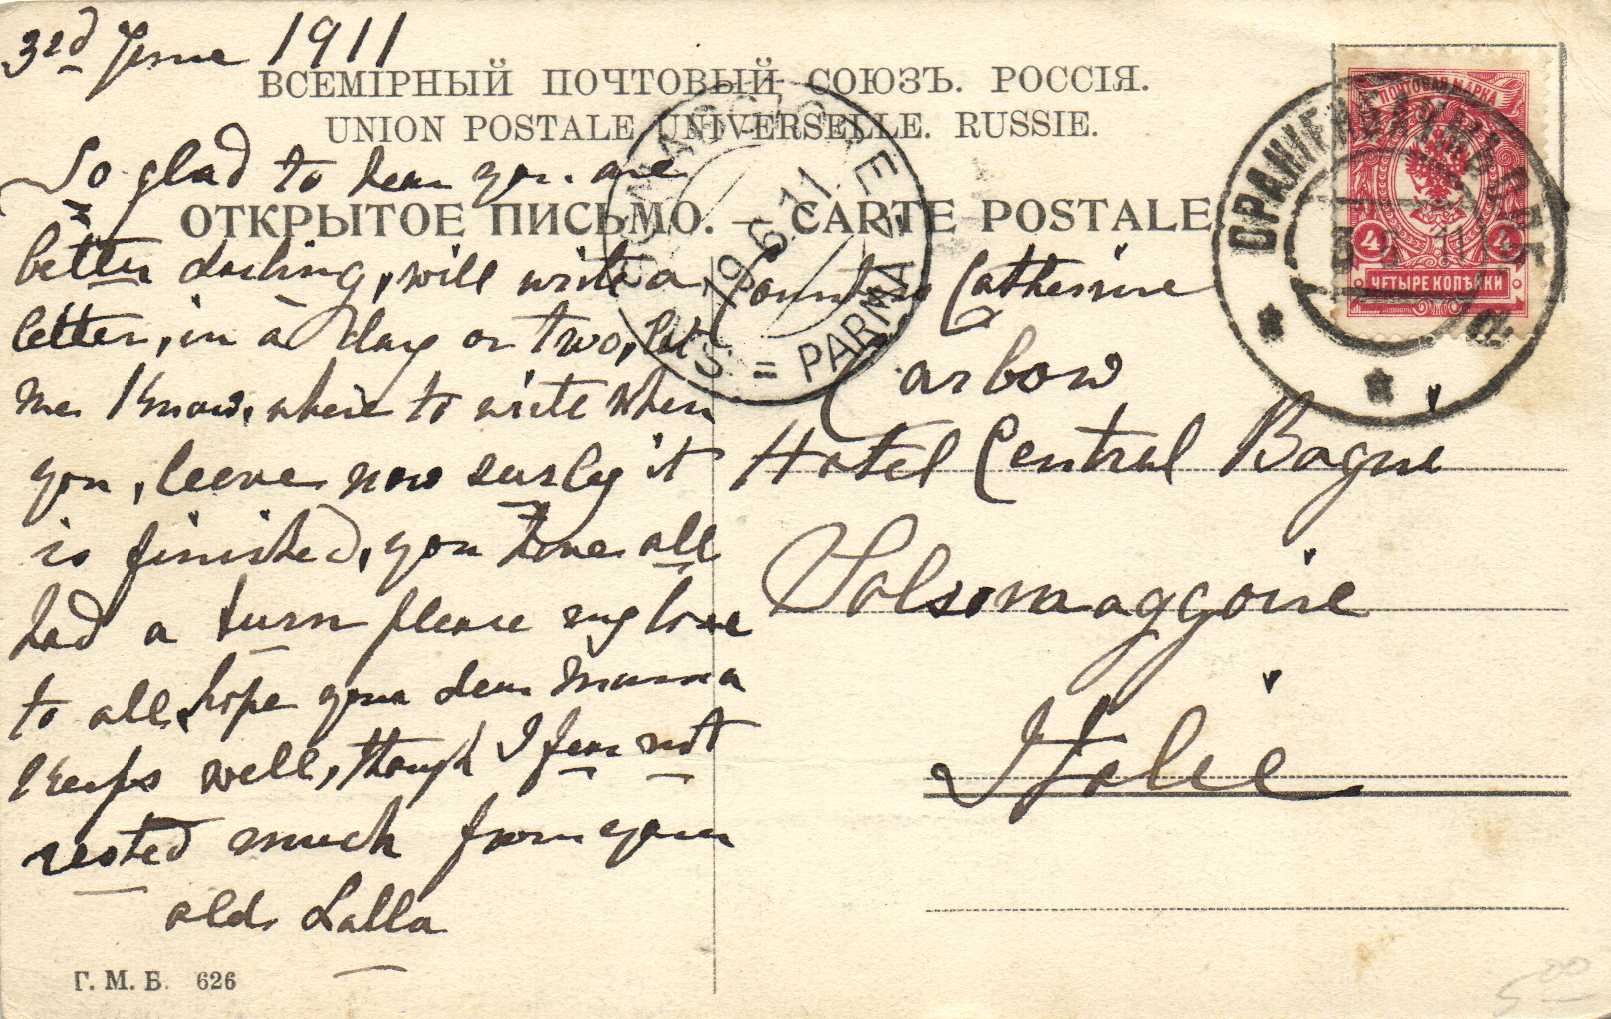 3rd June 1911
ВСЕМІРНЫЙ ПОЧТОВЫЙ СОЮЗЪ. РОССІЯ.
UNION POSTALE UNIVERSELLE. RUSSIE.
ОТКРЫТОЕ ПИСЬМО. — CARTE POSTALE
So glad to hear you are
better darling, will write a
letter, in a day or two, let
me know, where to write when
you, leeve now surly it
is finished, you have all
had a turn please my love
to all, hope your dear Mama
keeps well, though I fear not
rested much from your
old Lalla
Г. М. Б. 626
Countess Catherine
Carbow
Hotel Central Bagni
Salsomaggoire
Italie
ПОЧТОВАЯ МАРКА
4 4
ЧЕТЫРЕ КОПѢЙКИ
ОРАНІЕНБАУМЪ
SALSOMAGGIORE
19.6.11.
PARMA
5.00